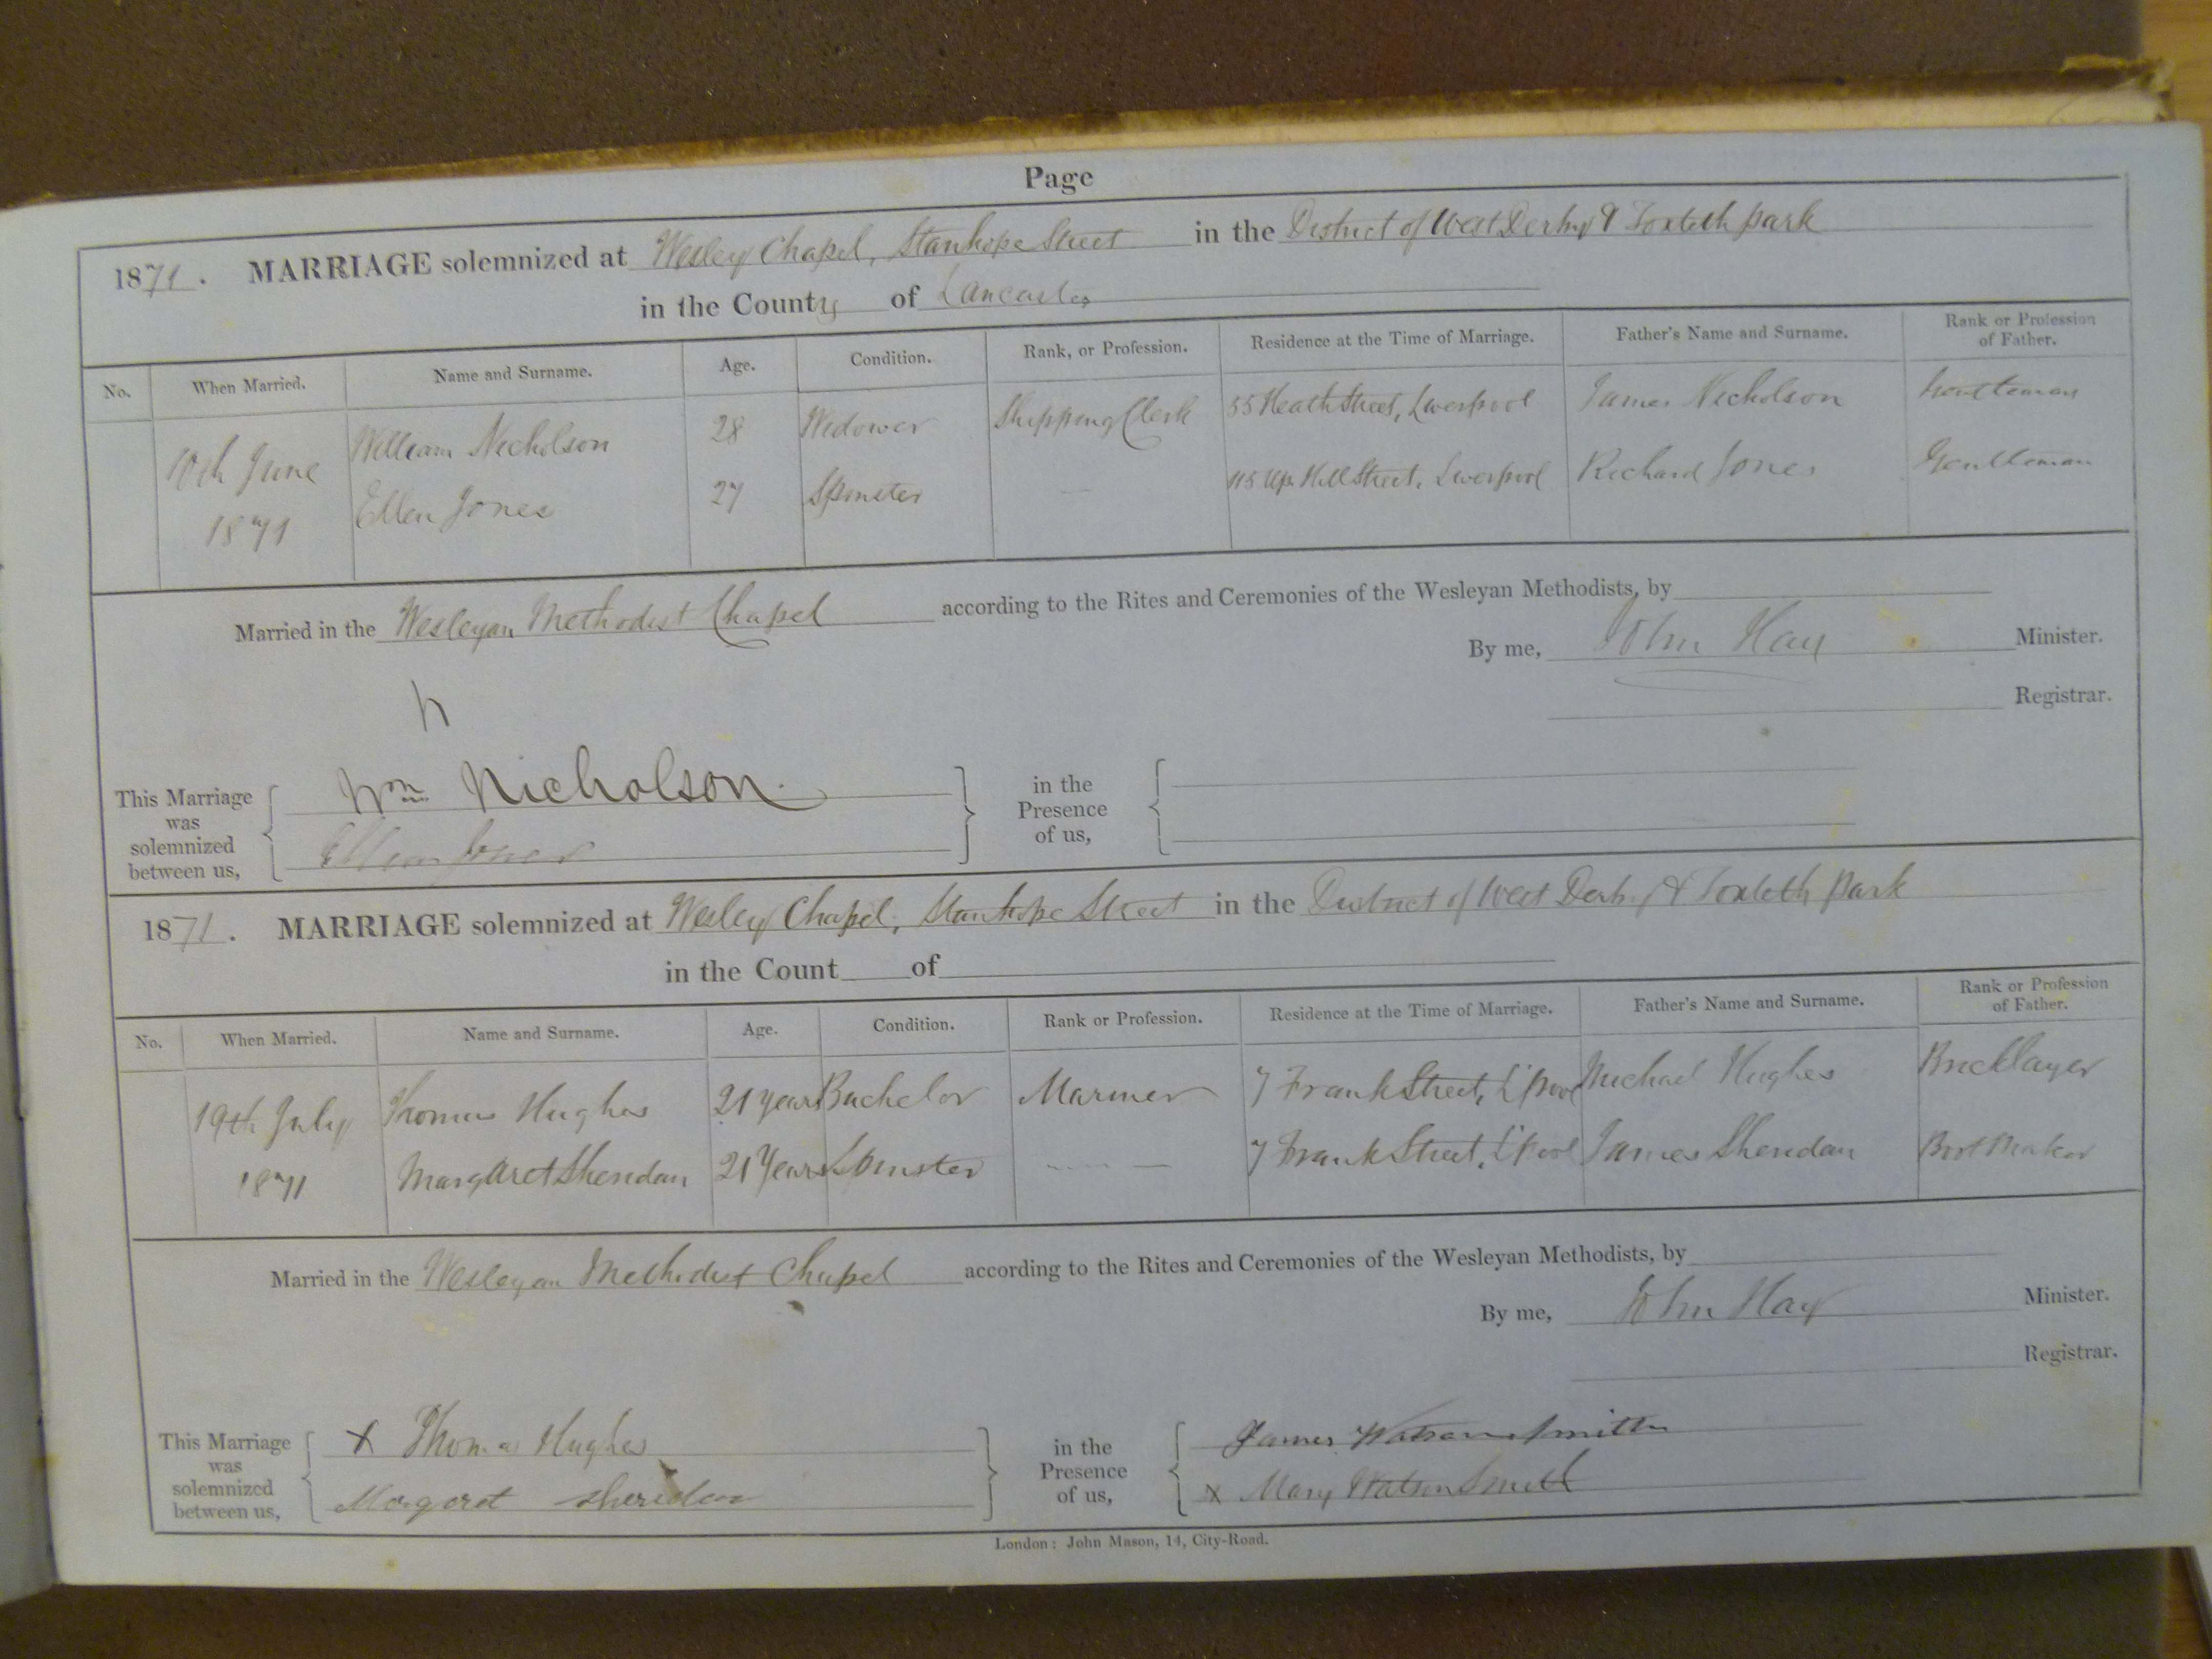 Page
1871. MARRIAGE solemnized at Wesley Chapel, Stanhope Street in the District of West Derby & Toxteth park
in the County of Lancaster
No. When Married. Name and Surname. Age. Condition. Rank, or Profession. Residence at the Time of Marriage. Father's Name and Surname. Rank or Profession of Father.
10th June William Nicholson 28 Widower Shipping Clerk 55 Heath Street, Liverpool James Nicholson Gentleman
1871 Ellen Jones 27 Spinster — 115 Up. Hill Street, Liverpool Richard Jones Gentleman
Married in the Wesleyan Methodist Chapel according to the Rites and Ceremonies of the Wesleyan Methodists, by
By me, John Hay Minister.
Registrar.
This Marriage was solemnized between us, Wm Nicholson in the Presence of us,
Ellen Jones
1871. MARRIAGE solemnized at Wesley Chapel, Stanhope Street in the District of West Derby & Toxteth Park
in the Count of
No. When Married. Name and Surname. Age. Condition. Rank or Profession. Residence at the Time of Marriage. Father's Name and Surname. Rank or Profession of Father.
19th July Thomas Hughes 21 years Bachelor Mariner 7 Frank Street, L'pool Michael Hughes Bricklayer
1871 Margaret Sheridan 21 Years Spinster — 7 Frank Street, L'pool James Sheridan Boot Maker
Married in the Wesleyan Methodist Chapel according to the Rites and Ceremonies of the Wesleyan Methodists, by
By me, John Hay Minister.
Registrar.
This Marriage was solemnized between us, X Thomas Hughes in the Presence of us, James Watson Smith
Margaret Sheridan X Mary Watson Smith
London: John Mason, 14, City-Road.